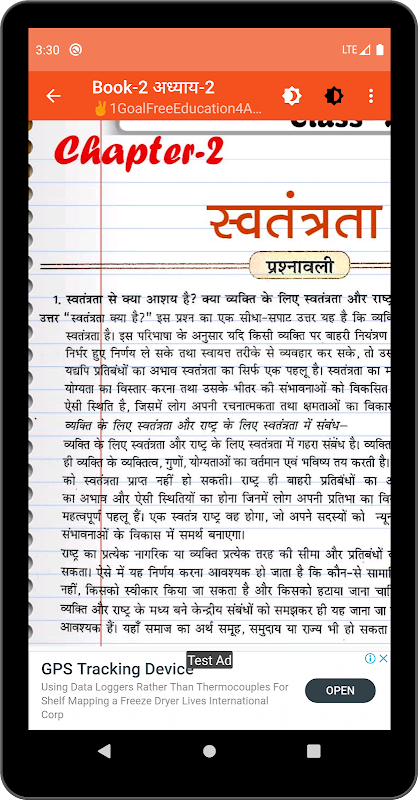 3:30 LTE
Book-2 अध्याय-2
✌1GoalFreeEducation4A...
Class
Chapter-2
स्वतंत्रता
प्रश्नावली
1. स्वतंत्रता से क्या आशय है? क्या व्यक्ति के लिए स्वतंत्रता और राष्ट्र
उत्तर “स्वतंत्रता क्या है?” इस प्रश्न का एक सीधा-सपाट उत्तर यह है कि व्यक्ति
स्वतंत्रता है। इस परिभाषा के अनुसार यदि किसी व्यक्ति पर बाहरी नियंत्रण
निर्भर हुए निर्णय ले सके तथा स्वायत्त तरीके से व्यवहार कर सके, तो उस
यद्यपि प्रतिबंधों का अभाव स्वतंत्रता का सिर्फ एक पहलू है। स्वतंत्रता का म
योग्यता का विस्तार करना तथा उसके भीतर की संभावनाओं को विकसित
ऐसी स्थिति है, जिसमें लोग अपनी रचनात्मकता तथा क्षमताओं का विकास
व्यक्ति के लिए स्वतंत्रता और राष्ट्र के लिए स्वतंत्रता में संबंध–
व्यक्ति के लिए स्वतंत्रता और राष्ट्र के लिए स्वतंत्रता में गहरा संबंध है। व्यक्ति
ही व्यक्ति के व्यक्तित्व, गुणों, योग्यताओं का वर्तमान एवं भविष्य तय करती है।
को स्वतंत्रता प्राप्त नहीं हो सकती। राष्ट्र ही बाहरी प्रतिबंधों का अ
का अभाव और ऐसी स्थितियों का होना जिनमें लोग अपनी प्रतिभा का वि
महत्वपूर्ण पहलू हैं। एक स्वतंत्र राष्ट्र वह होगा, जो अपने सदस्यों को न्यून
संभावनाओं के विकास में समर्थ बनाएगा।
राष्ट्र का प्रत्येक नागरिक या व्यक्ति प्रत्येक तरह की सीमा और प्रतिबंधों व
सकता। ऐसे में यह निर्णय करना आवश्यक हो जाता है कि कौन-से सामा
नहीं, किसको स्वीकार किया जा सकता है और किसको हटाया जाना चाहि
व्यक्ति और राष्ट्र के मध्य बने केन्द्रीय संबंधों को समझकर ही यह जाना जा
आवश्यक हैं। यहाँ समाज का अर्थ समूह, समुदाय या राज्य भी हो सकता
Test Ad
GPS Tracking Device
Using Data Loggers Rather Than Thermocouples For
Shelf Mapping a Freeze Dryer Lives International
Corp
OPEN